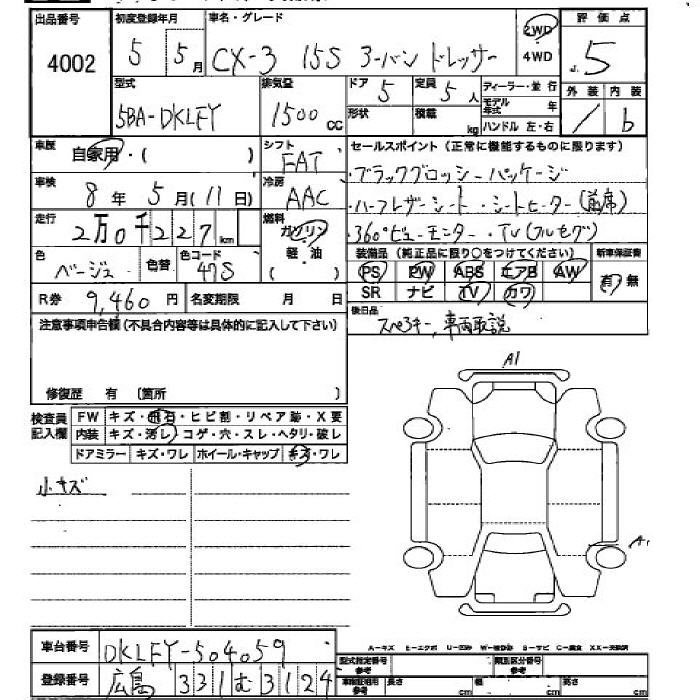 出品番号 初度登録年月 車名・グレード 評価点
4002 5 5月 CX-3 15S アーバン ドレッサー 2WD 4WD 5
型式 排気量 ドア 5 定員 5人 ディーラー・並行 外装 内装
5BA-DKLFY 1500cc 形状 積載 kg モデル年式 年 ハンドル 左・右 / b
車歴 自家用・( ) シフト FAT セールスポイント (正常に機能するものに限ります)
・ブラックグロッシーパッケージ
車検 8年 5月(11日) 冷房 AAC ・ハーフレザーシート・シートヒーター(前席)
走行 2万0千227km 燃料 ガソリン 軽・油 ( ) ・360°ビューモニター・TV(フルセグ)
色 ベージュ 色替 色コード 47S 装備品 (純正品に限り○をつけてください) 新車保証書
PS PW ABS エアB AW 有・無
R券 9,460円 名変期限 月 日 SR ナビ TV カワ
注意事項申告欄(不具合内容等は具体的に記入して下さい) 後日品 スペアキー,車両取説
修復歴 有 〔箇所 〕
検査員記入欄 FW キズ・飛石・ヒビ割・リペア跡・X要
内装 キズ・汚レ・コゲ・穴・スレ・ヘタリ・破レ
ドアミラー キズ・ワレ ホイール・キャップ キズ・ワレ
小キズ
A1
A1
A-キズ E-エクボ U-凹み W-補修跡 S-サビ C-腐食 XX-交換済
車台番号 DKLFY-504059
型式指定番号 参考 類別区分番号 参考
登録番号 広島 331 む 3124
車検証明用 参考 長さ cm 幅 cm 高さ cm